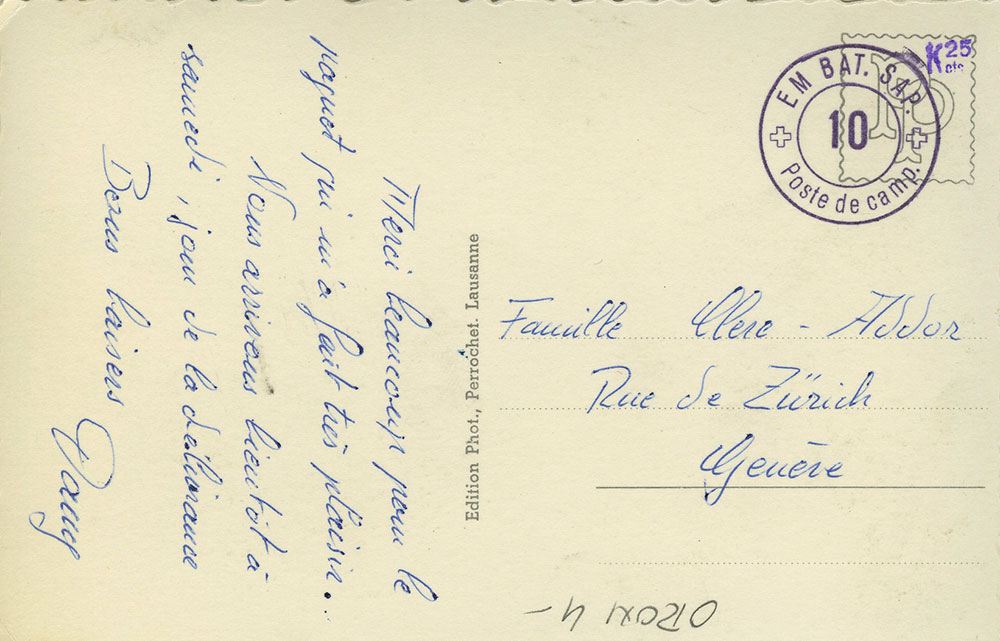 Merci beaucoup pour le
paquet qui m'a fait très plaisir...
Nous arrivons bientôt à
samedi, jour de la délivrance
Bons baisers
Edition Phot., Perrochet. Lausanne
K 25
cts
EM BAT. SAP.
10
Poste de camp.
Famille Clerc - Addor
Rue de Zürich
Genève
ORON 4 -